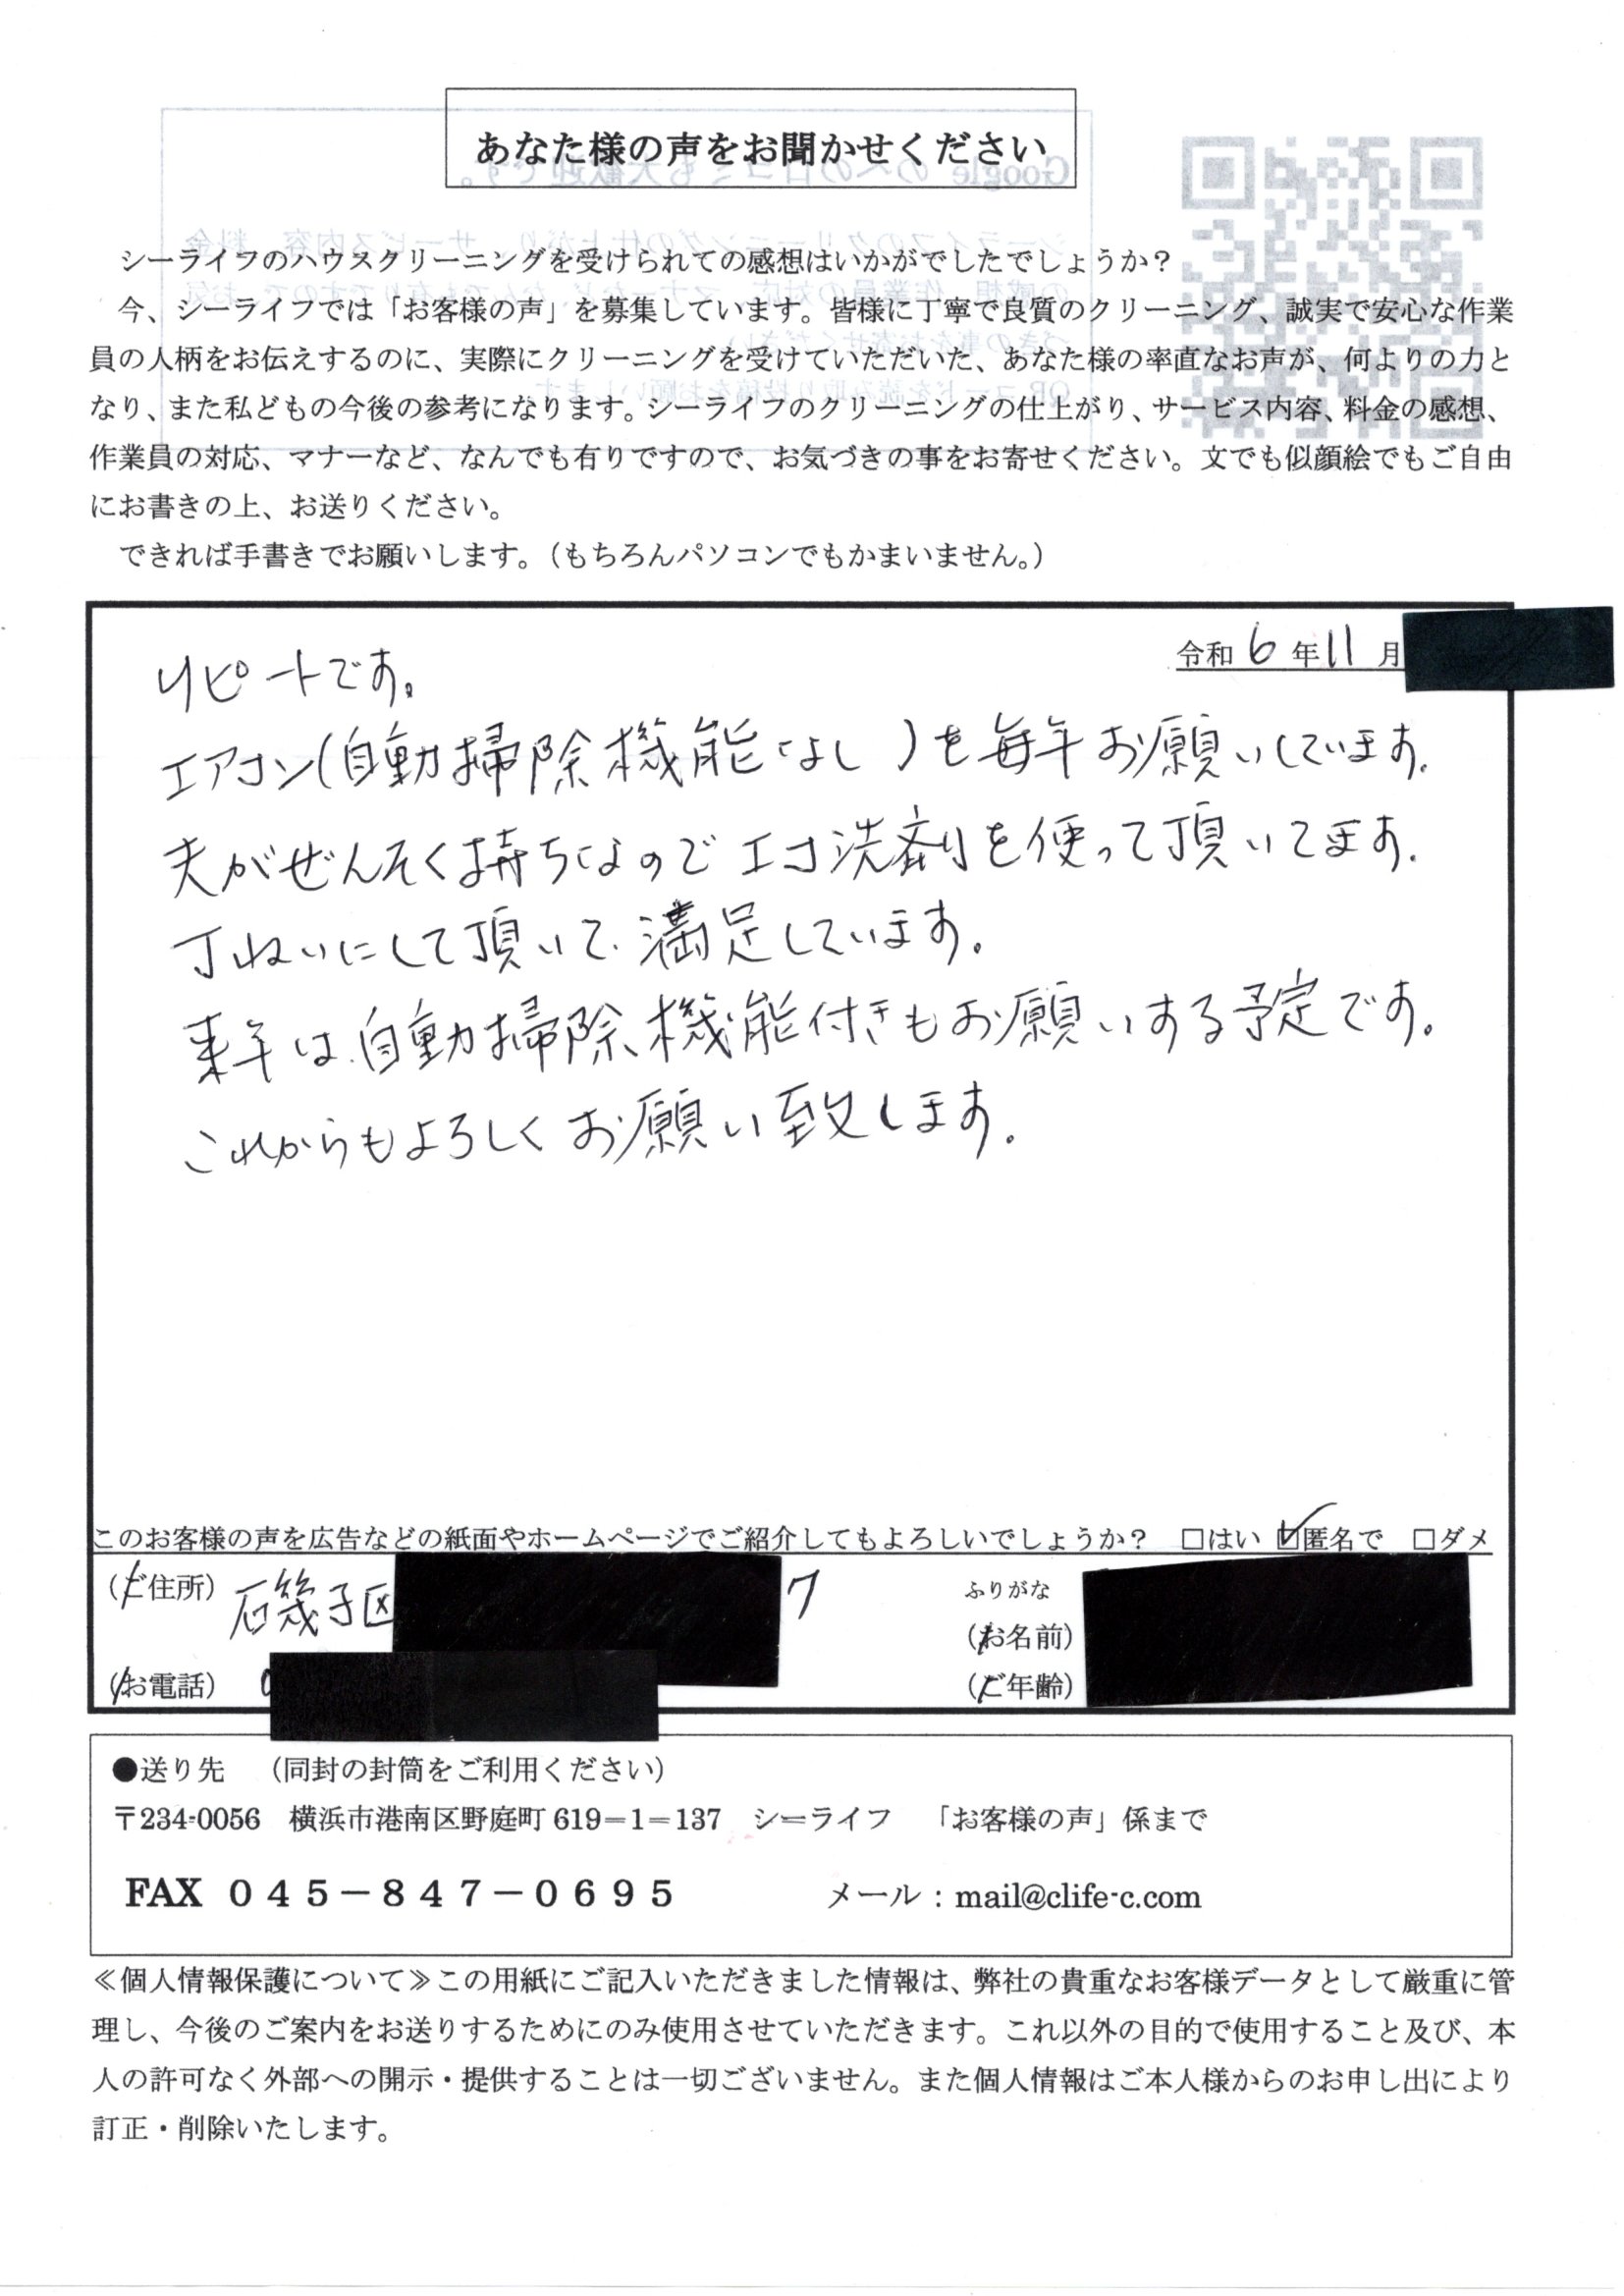 あなた様の声をお聞かせください
シーライフのハウスクリーニングを受けられての感想はいかがでしたでしょうか？
今、シーライフでは「お客様の声」を募集しています。皆様に丁寧で良質のクリーニング、誠実で安心な作業
員の人柄をお伝えするのに、実際にクリーニングを受けていただいた、あなた様の率直なお声が、何よりの力と
なり、また私どもの今後の参考になります。シーライフのクリーニングの仕上がり、サービス内容、料金の感想、
作業員の対応、マナーなど、なんでも有りですので、お気づきの事をお寄せください。文でも似顔絵でもご自由
にお書きの上、お送りください。
できれば手書きでお願いします。（もちろんパソコンでもかまいません。）
令和 6 年 11 月
リピートです。
エアコン(自動掃除機能なし)を毎年お願いしています。
夫がぜんそく持ちなのでエコ洗剤を使って頂いてます。
丁ねいにして頂いて、満足しています。
来年は、自動掃除機能付きもお願いする予定です。
これからもよろしくお願い致します。
このお客様の声を広告などの紙面やホームページでご紹介してもよろしいでしょうか？ □はい ☑匿名で □ダメ
（ご住所） 磯子区 7 ふりがな
（お名前）
（お電話） （ご年齢）
●送り先 （同封の封筒をご利用ください）
〒234-0056 横浜市港南区野庭町 619－1－137 シーライフ 「お客様の声」係まで
FAX ０４５－８４７－０６９５ メール：mail@clife-c.com
≪個人情報保護について≫この用紙にご記入いただきました情報は、弊社の貴重なお客様データとして厳重に管
理し、今後のご案内をお送りするためにのみ使用させていただきます。これ以外の目的で使用すること及び、本
人の許可なく外部への開示・提供することは一切ございません。また個人情報はご本人様からのお申し出により
訂正・削除いたします。